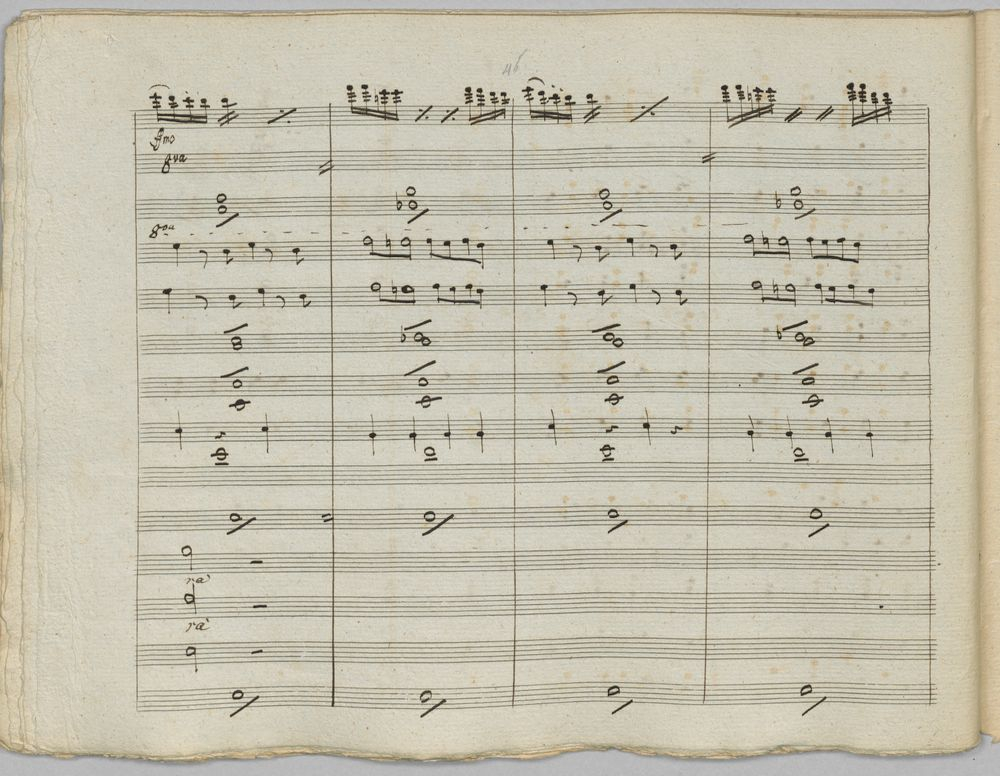 46
Fmo
8va
8va
rà
rà